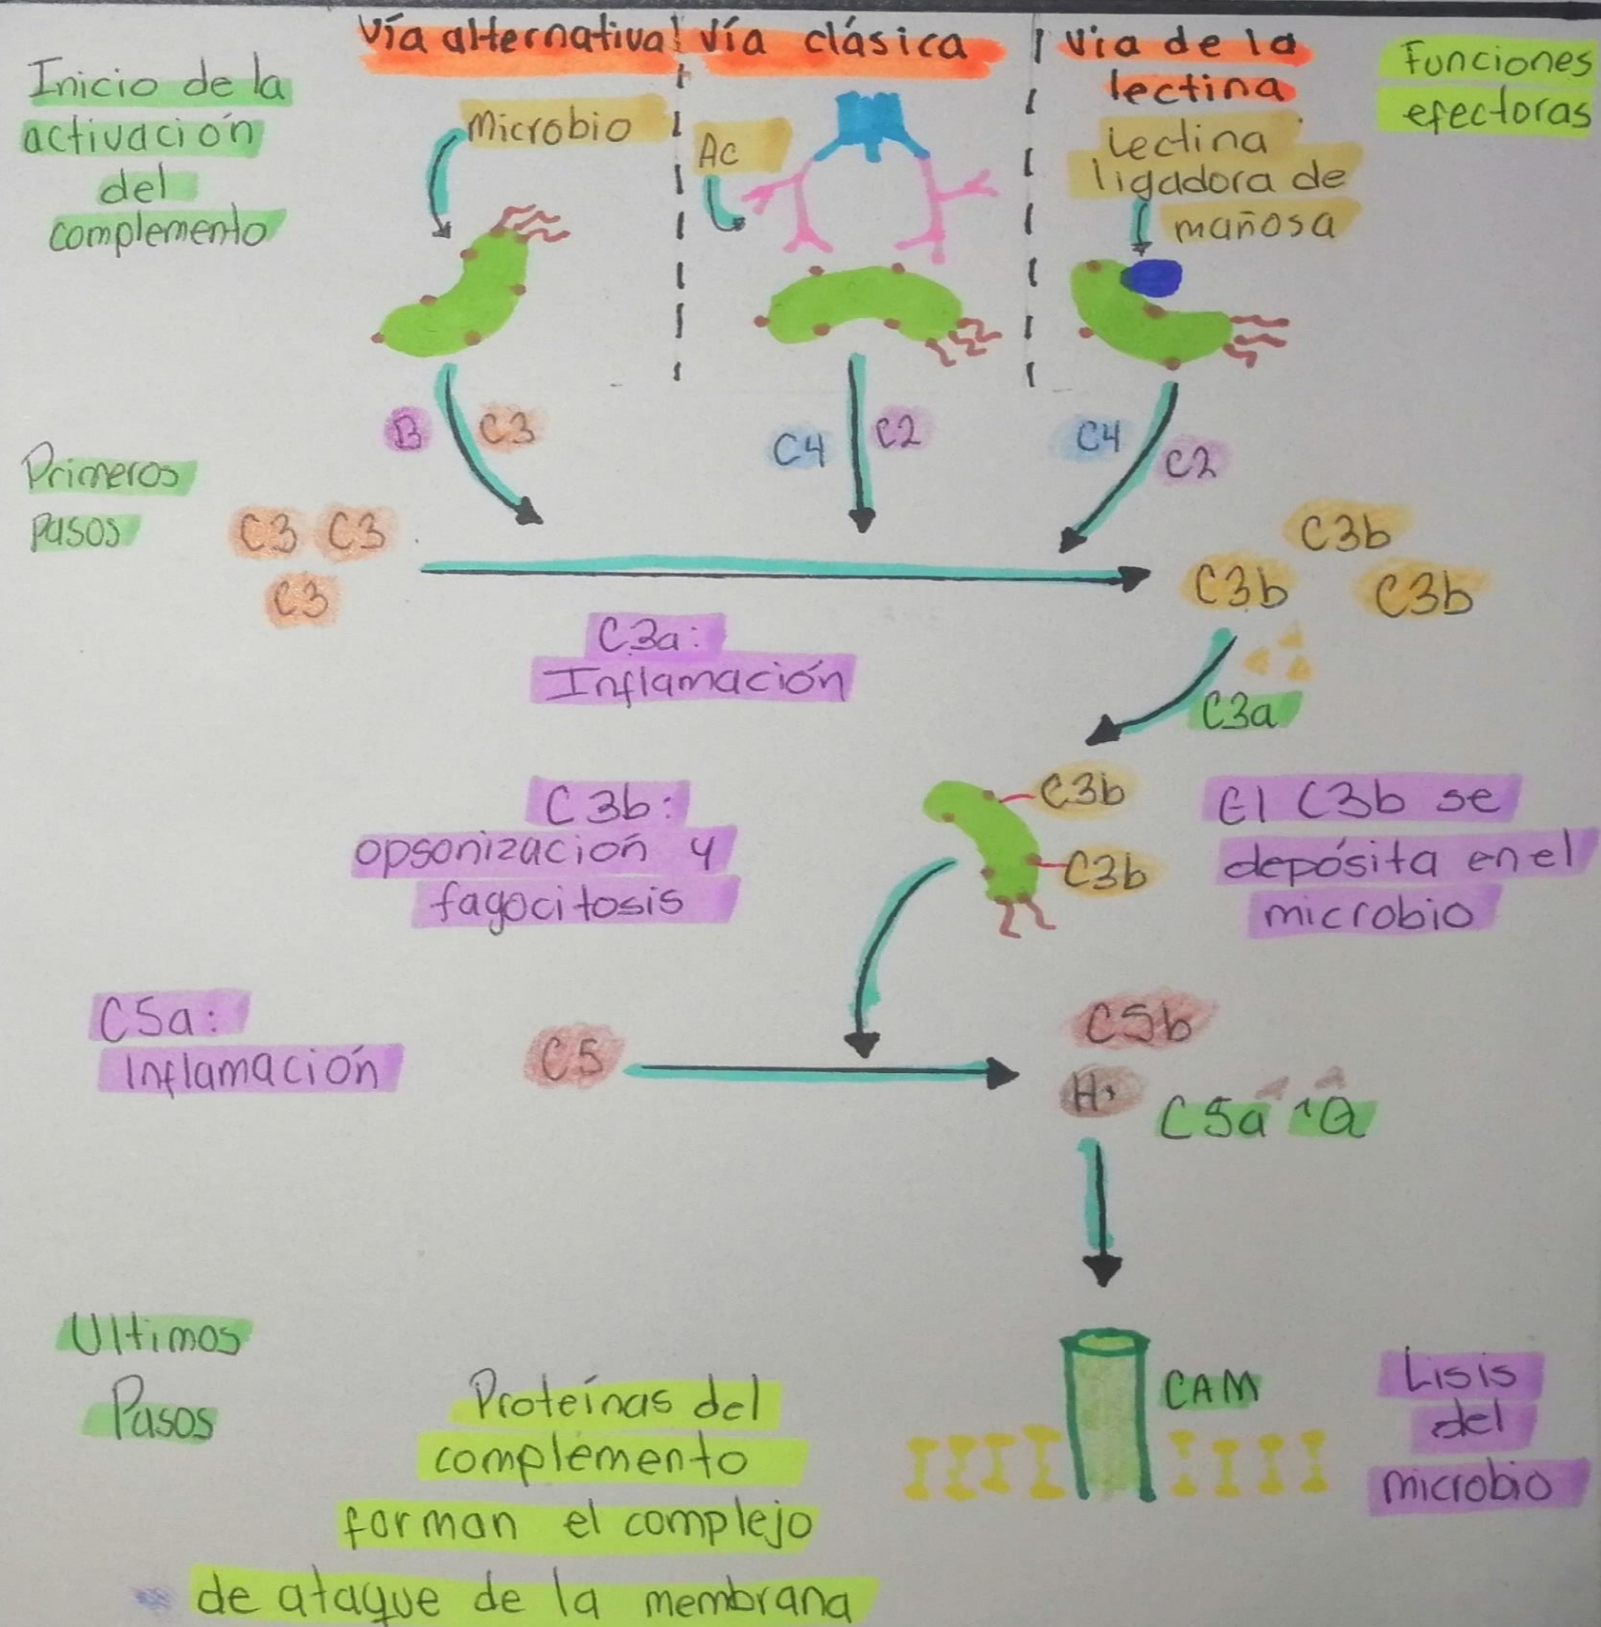 Vía alternativa
Vía clásica
Via de la
lectina
Funciones
efectoras
Inicio de la
activación
del
complemento
Microbio
Ac
Lectina
ligadora de
mañosa
B
C3
C4
C2
C4
C2
Primeros
Pasos
C3 C3
C3
C3b
C3b
C3b
C3a:
Inflamación
C3a
C3b:
opsonización y
fagocitosis
C3b
C3b
El C3b se
depósita en el
microbio
C5a:
Inflamación
C5
C5b
C5a
Ultimos
Pasos
Proteínas del
complemento
forman el complejo
de ataque de la membrana
CAM
Lisis
del
microbio